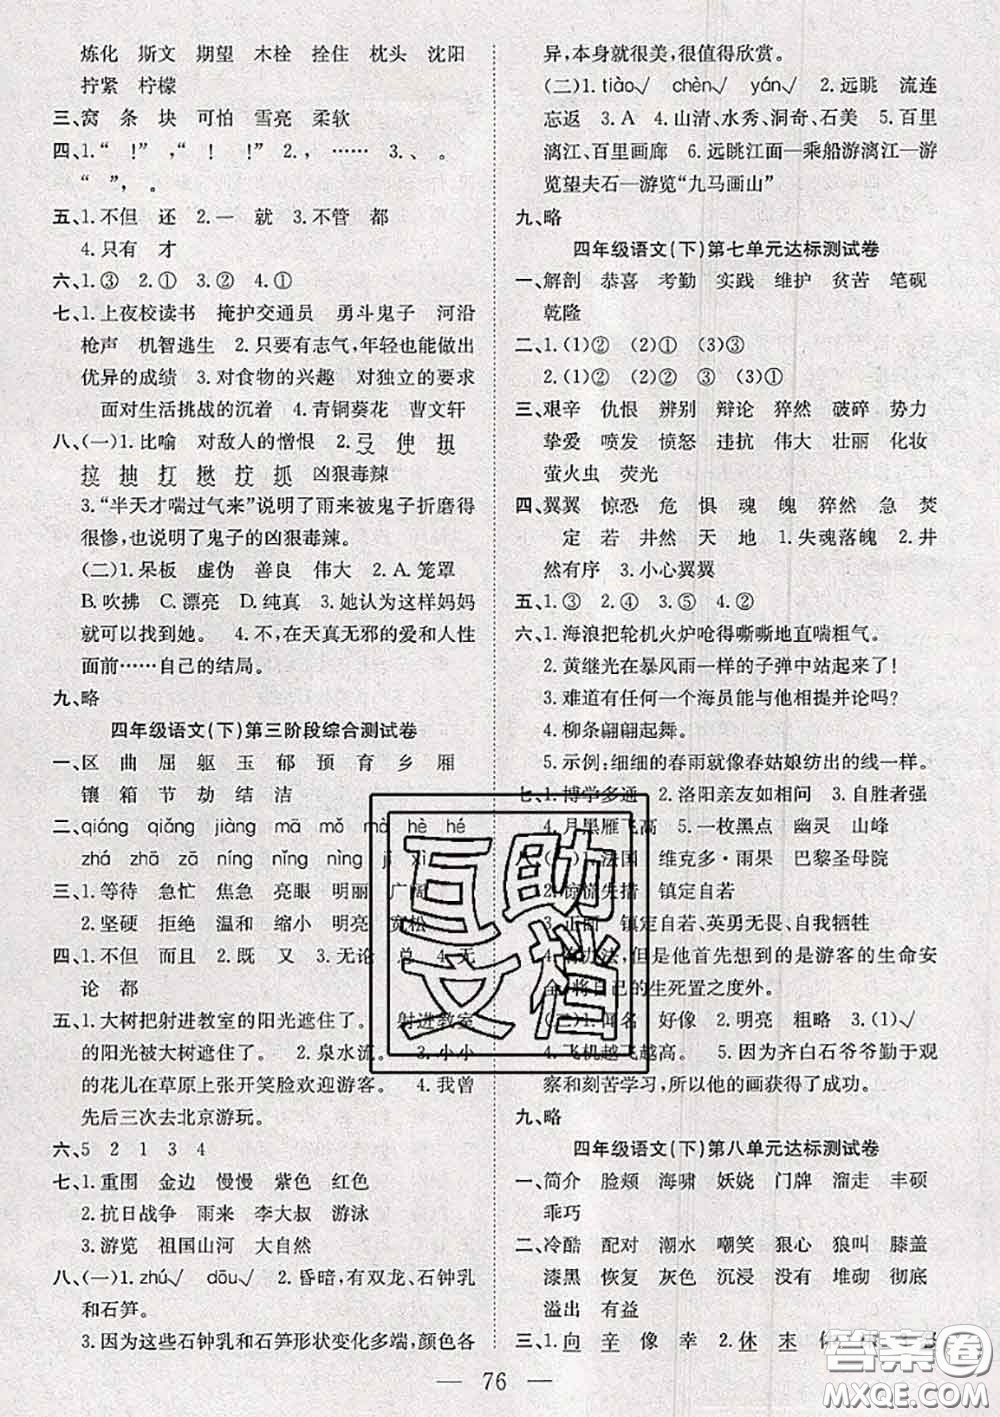 炼化 斯文 期望 木栓 拴住 枕头 沈阳
拧紧 柠檬
三、窝 条 块 可怕 雪亮 柔软
四、1.“ !”,“ ! !” 2.,…… 3.、。
“ ”,。
五、1.不但 还 2.一 就 3.不管 都
4.只有 才
六、1.③ 2.① 3.① 4.②
七、1.上夜校读书 掩护交通员 勇斗鬼子 河沿
枪声 机智逃生 2.只要有志气,年轻也能做出
优异的成绩 3.对食物的兴趣 对独立的要求
面对生活挑战的沉着 4.青铜葵花 曹文轩
八、(一)1.比喻 对敌人的憎恨 2.弓 伸 扭
拉 抽 打 揪 拧 抓 凶狠毒辣
3.“半天才喘过气来”说明了雨来被鬼子折磨得
很惨,也说明了鬼子的凶狠毒辣。
(二)1.呆板 虚伪 善良 伟大 2.A.笼罩
B.吹拂 C.漂亮 D.纯真 3.她认为这样妈妈
就可以找到她。 4.不,在天真无邪的爱和人性
面前……自己的结局。
九、略
四年级语文(下)第三阶段综合测试卷
一、区 曲 屈 躯 玉 郁 预 育 乡 厢
镶 箱 节 劫 结 洁
二、qiáng qiǎng jiàng mā mǒ hè hé
zhá zhā zā níng nǐng nìng
三、1.等待 急忙 焦急 亮眼 明丽 广阔
2.坚硬 拒绝 温和 缩小 明亮 宽松
四、1.不但 而且 2.既 又 3.无论 总 4.无
论 都
五、1.大树把射进教室的阳光遮住了。 射进教室
的阳光被大树遮住了。 2.泉水流。 3.小小
的花儿在草原上张开笑脸欢迎游客。 4.我曾
先后三次去北京游玩。
六、5 2 1 3 4
七、1.重围 金边 慢慢 紫色 红色
2.抗日战争 雨来 李大叔 游泳
3.游览 祖国山河 大自然
八、(一)1.zhú√ dōu√ 2.昏暗,有双龙、石钟乳
和石笋。
3.因为这些石钟乳和石笋形状变化多端,颜色各
异,本身就很美,很值得欣赏。
(二)1.tiào√ chèn√ yán√ 2.远眺 流连
忘返 3.A 4.山清、水秀、洞奇、石美 5.百里
漓江、百里画廊 6.远眺江面—乘船游漓江—游
览望夫石—游览“九马画山”
九、略
四年级语文(下)第七单元达标测试卷
一、解剖 恭喜 考勤 实践 维护 贫苦 笔砚
乾隆
二、1.(1)② (2)① (3)③
2.(1)② (2)③ (3)①
三、艰辛 仇恨 辨别 辩论 猝然 破碎 势力
挚爱 喷发 愤怒 违抗 伟大 壮丽 化妆
萤火虫 荧光
四、翼翼 惊恐 危 惧 魂 魄 猝然 急 焚
定 若 井然 天 地 1.失魂落魄 2.井
然有序 3.小心翼翼
五、1.③ 2.④ 3.⑤ 4.②
六、1.海浪把轮机火炉呛得嘶嘶地直喘粗气。
2.黄继光在暴风雨一样的子弹中站起来了!
3.难道有任何一个海员能与他相提并论吗?
4.柳条翩翩起舞。
5.示例:细细的春雨就像春姑娘纺出的线一样。
七、1.博学多通 2.洛阳亲友如相问 3.自胜者强
4.月黑雁飞高 5.一枚黑点 幽灵 山峰
八、(一)1.法国 维克多·雨果 巴黎圣母院
2.惊慌失措 镇定自若
3.正面 镇定自若、英勇无畏、自我牺牲
全,将自己的生死置之度外。
(二)1.闻名 好像 2.明亮 粗略 3.(1)√
4.飞机越飞越高。 5.因为齐白石爷爷勤于观
察和刻苦学习,所以他的画获得了成功。
九、略
四年级语文(下)第八单元达标测试卷
一、简介 脸颊 海啸 妖娆 门牌 溜走 丰硕
乖巧
二、冷酷 配对 潮水 嘲笑 狠心 狼叫 膝盖
漆黑 恢复 灰色 沉浸 没有 堆砌 彻底
溢出 有益
三、1.向 辛 像 幸 2.休 末
76
互助文档
答案圈
MXQE.COM